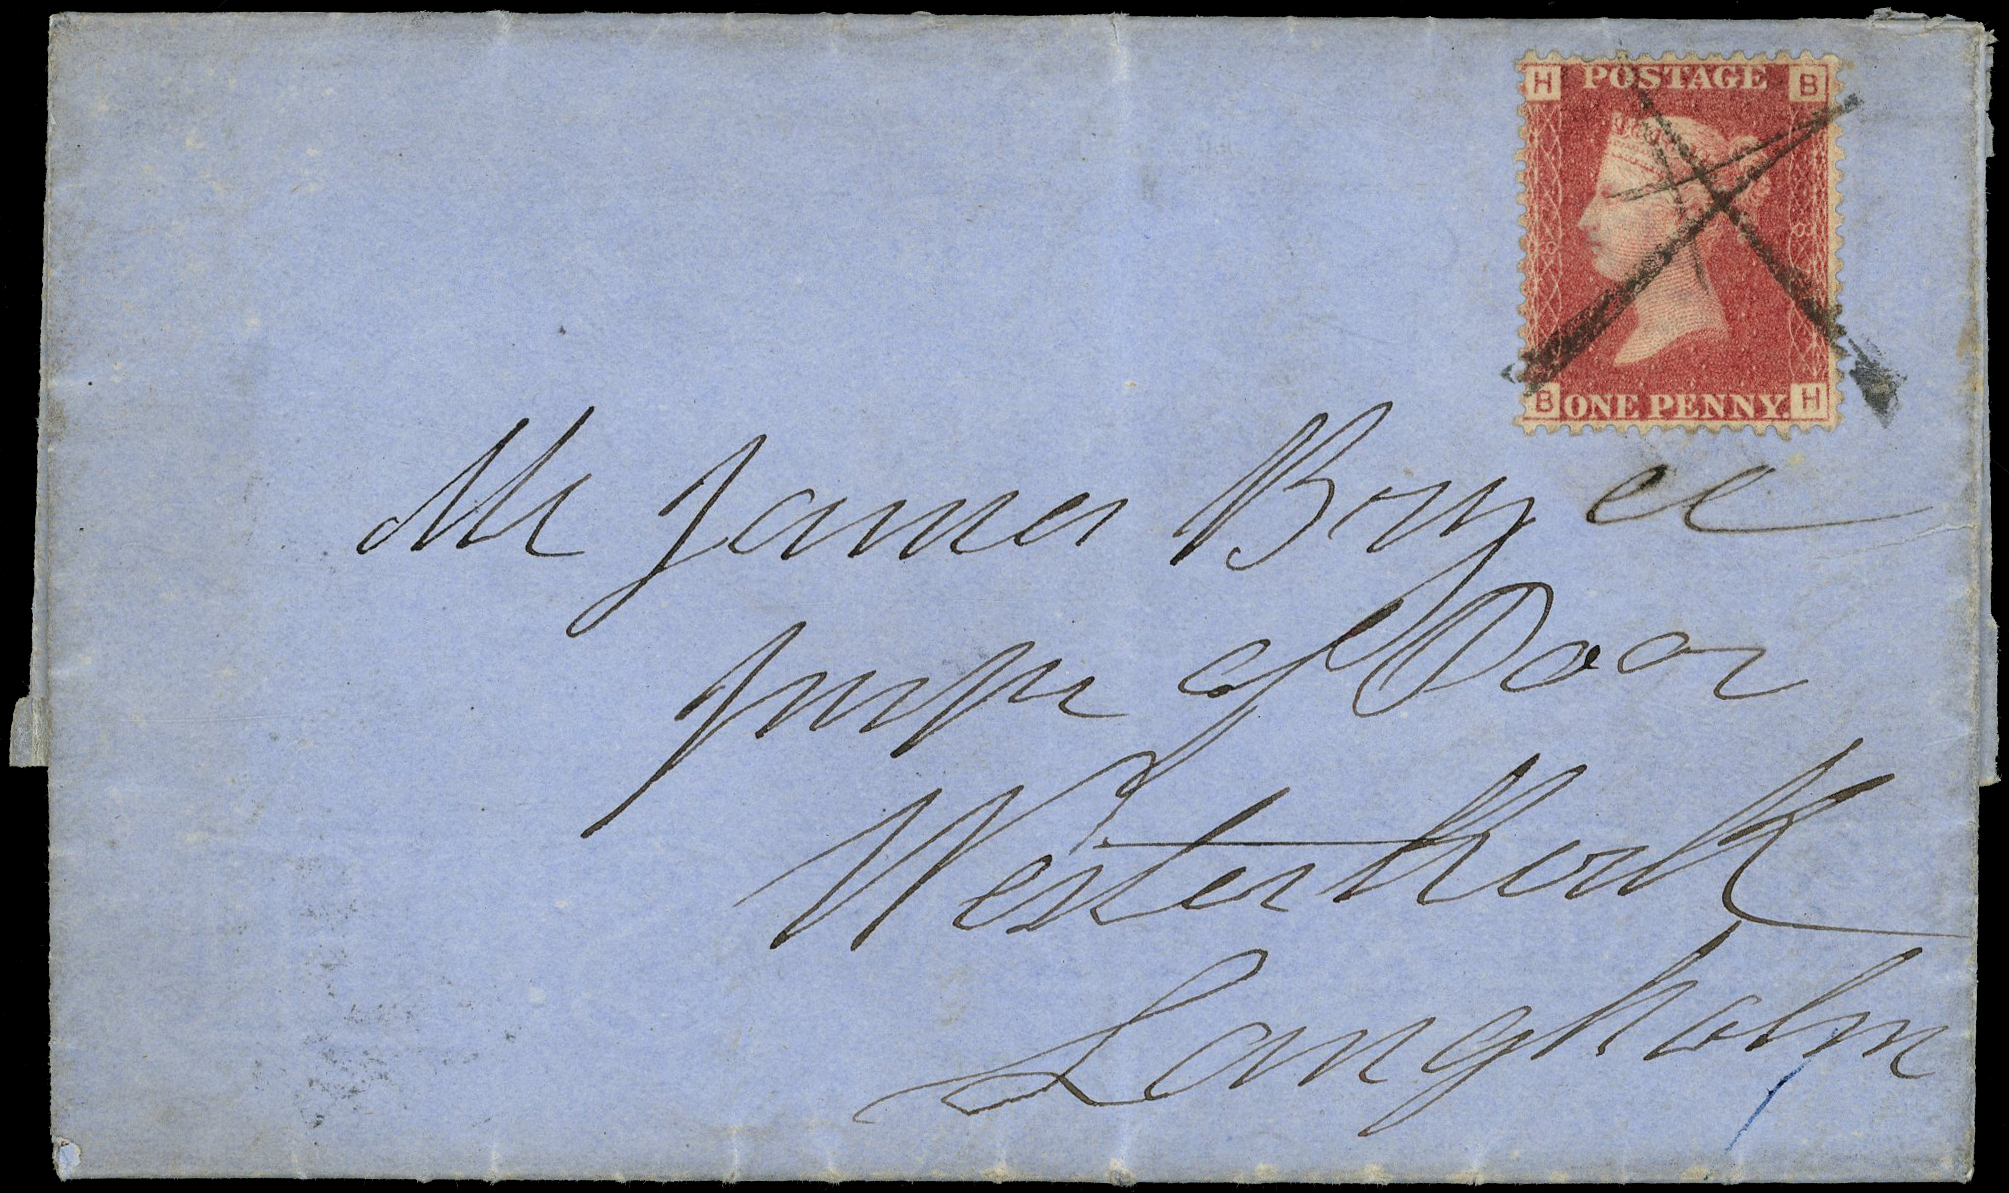 H POSTAGE B
B ONE PENNY H
Mr James
of Poor
Westerkirk
Langholm